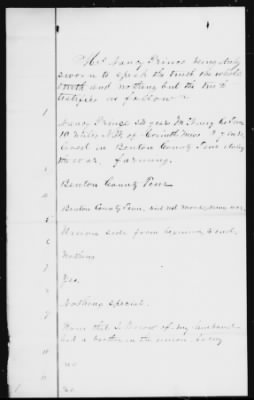 Mrs Nancy Prince being duly
sworn to speak the truth the whole
truth and nothing but the truth
testifies as follows
Nancy Prince 53 years McNairy Co Tenn
10 miles N.W. of Corinth Miss
lived in Benton County Tenn during
the war. farming.
Benton County Tenn
Benton County Tenn, did not move
Union side from beginning to end.
Nothing
Yes.
Nothing special.
None that I know of my husband
had a brother in the union Army
no
no